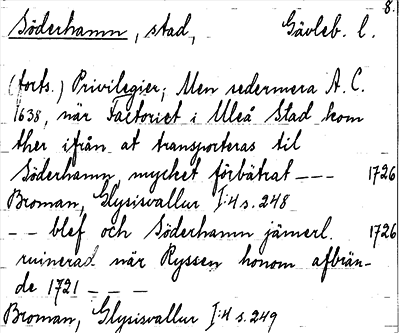 8.
Söderhamn, stad, Gävleb. l.
(forts.) Privilegier; Men sedermera A. C.
1638, när Factoriet i Uleå Stad kom
ther ifrån at transporteras til
Söderhamn mycket förbätrat --- 1726
Broman, Glysisvallur I:4 s. 248
-- blef och Söderhamn jämerl. 1726
ruinerad när Ryssen honom afbrän-
de 1721 ---
Broman, Glysisvallur I:4 s. 249